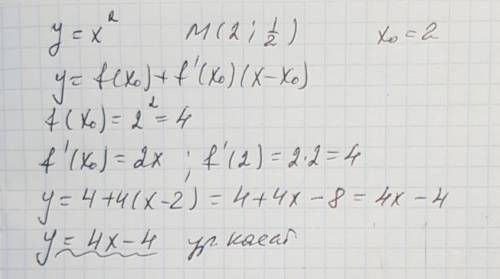 y = x² M(2; 1/2) x₀ = 2
y = f(x₀) + f'(x₀)(x - x₀)
f(x₀) = 2² = 4
f'(x₀) = 2x ; f'(2) = 2·2 = 4
y = 4 + 4(x - 2) = 4 + 4x - 8 = 4x - 4
y = 4x - 4 ур. касат